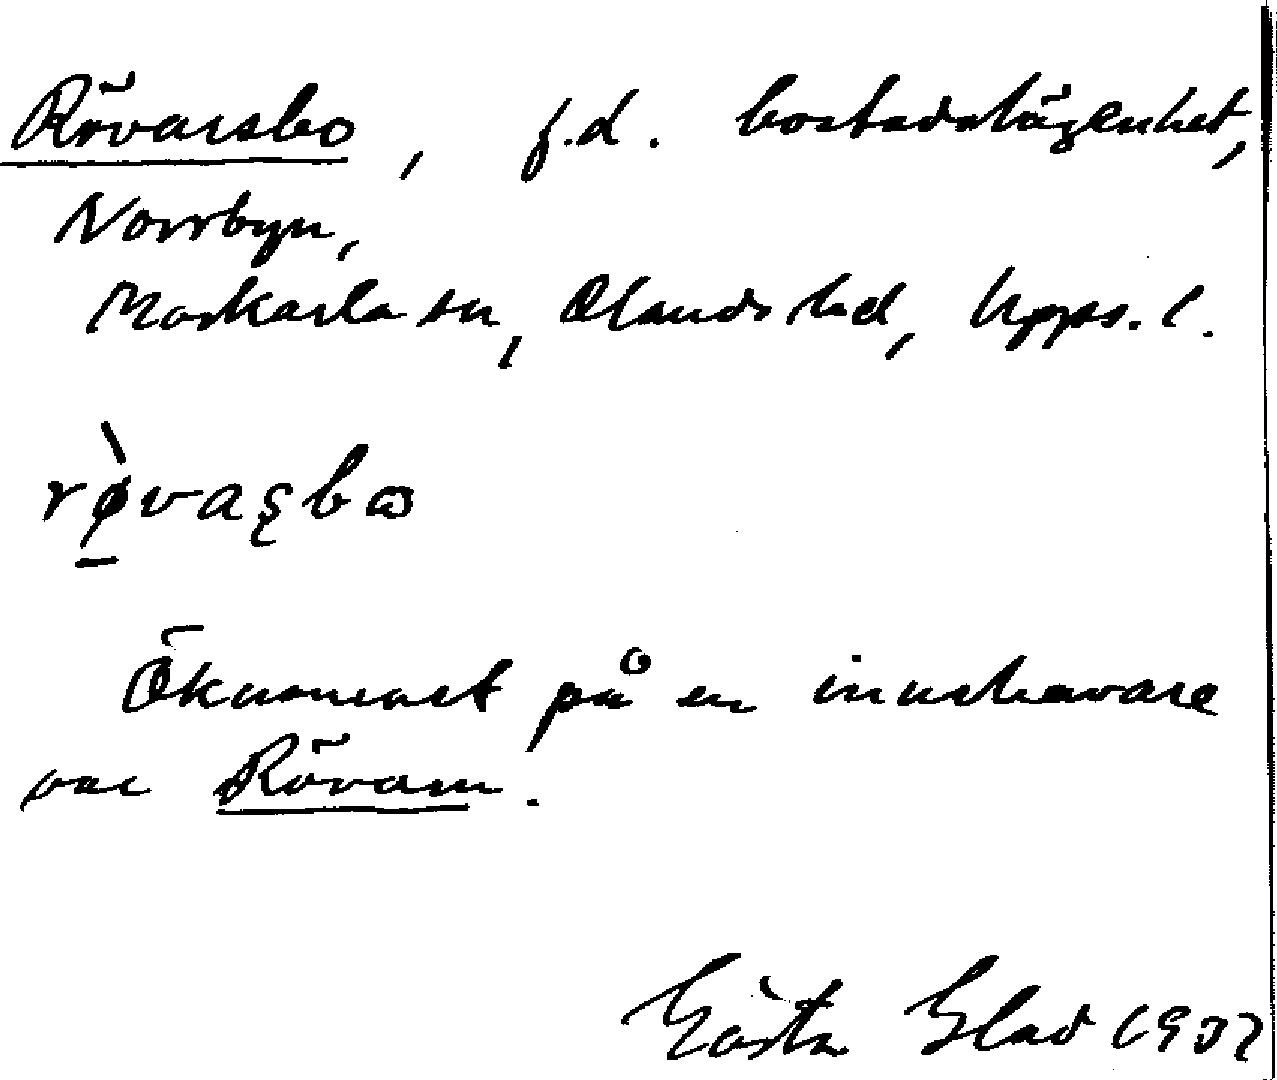 Rövarsbo, f.d. bostadslägenhet,
Norrbyn,
Morkarla sn, Olands hd, Upps. l.
rø̀vaʂbɷ
Öknamnet på en innehavare
var Rövarn.
Gösta Glad 1937